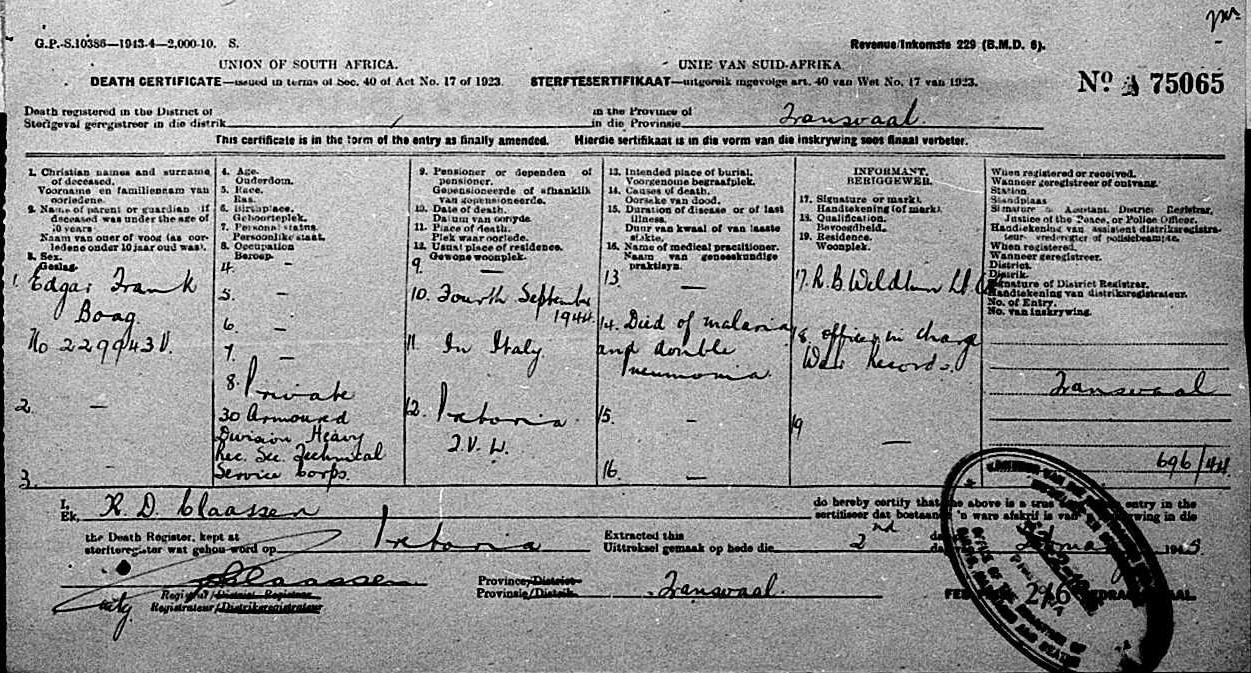 G.P.-S.10386—1943-4—2,000-10. S.
Revenue/Inkomste 229 (B.M.D. 6).
UNION OF SOUTH AFRICA.
UNIE VAN SUID-AFRIKA
DEATH CERTIFICATE—issued in terms of Sec. 40 of Act No. 17 of 1923.
STERFTESERTIFIKAAT—uitgereik ingevolge art. 40 van Wet No. 17 van 1923.
No A 75065
Death registered in the District of
Sterfgeval geregistreer in die distrik
in the Province of
in die Provinsie Transvaal.
This certificate is in the form of the entry as finally amended. Hierdie sertifikaat is in die vorm van die inskrywing soos finaal verbeter.
1. Christian names and surname
of deceased.
Voorname en familienaam van
oorledene.
2. Name of parent or guardian if
deceased was under the age of
10 years
Naam van ouer of voog (as oor-
ledene onder 10 jaar oud was).
3. Sex.
Geslag.
1. Edgar Frank
Boag
No 229943 V.
2. —
3.
4. Age.
Ouderdom.
5. Race.
Ras.
6. Birthplace.
Geboorteplek.
7. Personal status.
Persoonlike staat.
8. Occupation
Beroep.
4. —
5. —
6. —
7. —
8. Private
30 Armoured
Division Heavy
Rec. Sec. Technical
Service Corps.
9. Pensioner or dependen of
pensioner.
Gepensioneerde of afhanklik
van gepensioneerde.
10. Date of death.
Datum van oorlyde.
11. Place of death.
Plek waar oorlede.
12. Usual place of residence.
Gewone woonplek.
9. —
10. Fourth September
1944
11. In Italy
12. Pretoria
13. Intended place of burial.
Voorgenome begraafplek.
14. Causes of death.
Oorsake van dood.
15. Duration of disease or of last
illness.
Duur van kwaal of van laaste
siekte.
16. Name of medical practitioner.
Naam van geneeskundige
praktisyn.
13. —
14. Died of malaria
and double
Pneumonia
15. —
16. —
INFORMANT.
BERIGGEWER.
17. Signature or mark.
Handtekening (of mark).
18. Qualification.
Bevoegdheid.
19. Residence.
Woonplek.
17. R. B. Lt.
18. officer in charge
War Records.
19 —
When registered or received.
Wanneer geregistreer of ontvang.
Station.
Standplaas
Signature of Assistant District Registrar,
Justice of the Peace, or Police Officer.
Handtekening van assistent distriksregistra-
teur, vrederegter of polisiebeampte.
When registered.
Wanneer geregistreer.
District.
Distrik.
Signature of District Registrar.
Handtekening van distriksregistrateur.
No. of Entry.
No. van inskrywing.
Transvaal
696/44
I,
Ek, R. D. Claassen
do hereby certify that the above is a true entry in the
sertifiseer dat bostaande 'n ware afskrif is van inskrywing in die
the Death Register, kept at
sterfteregister wat gehou word op Pretoria
Extracted this
Uittreksel gemaak op hede die 2nd
1945
Claassen
Registrar/District Registrar
Registrateur/Distriksregistrateur
Province/District
Provinsie/Distrik. Transvaal.